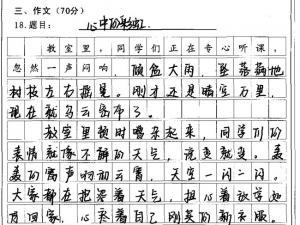 三、作文(70分)
18.题目: 心中的彩虹
教室里,同学们正在专心听课,
忽然一声闷响,倾盆大雨,坠落满地
树枝左右摇晃。刚才还是晴空万里,
现在就乌云密布了。
教室里顿时嘈杂起来,同学们的
表情就像不解的天气,说变就变。轰
轰的雷声响动云霄,天空一闪一闪。
大家都在抱怨着天气,担心着放学如
何回家,心疼着自己刚买的新衣服。